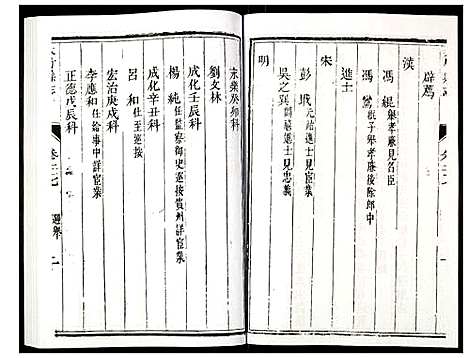 辟薦
漢
馮緄舉孝廉見名臣
馮鸞緄子舉孝廉後除郎中
進士
宋
彭
吳之巽嗣禧進士見忠義
明
永樂癸卯科
劉文林
成化壬辰科
楊純任監察御史巡按貴州詳宦業
成化辛丑科
呂和仕至巡按
宏治庚戌科
李應和仕給事中詳宦業
正德戊辰科
卷二七
選舉